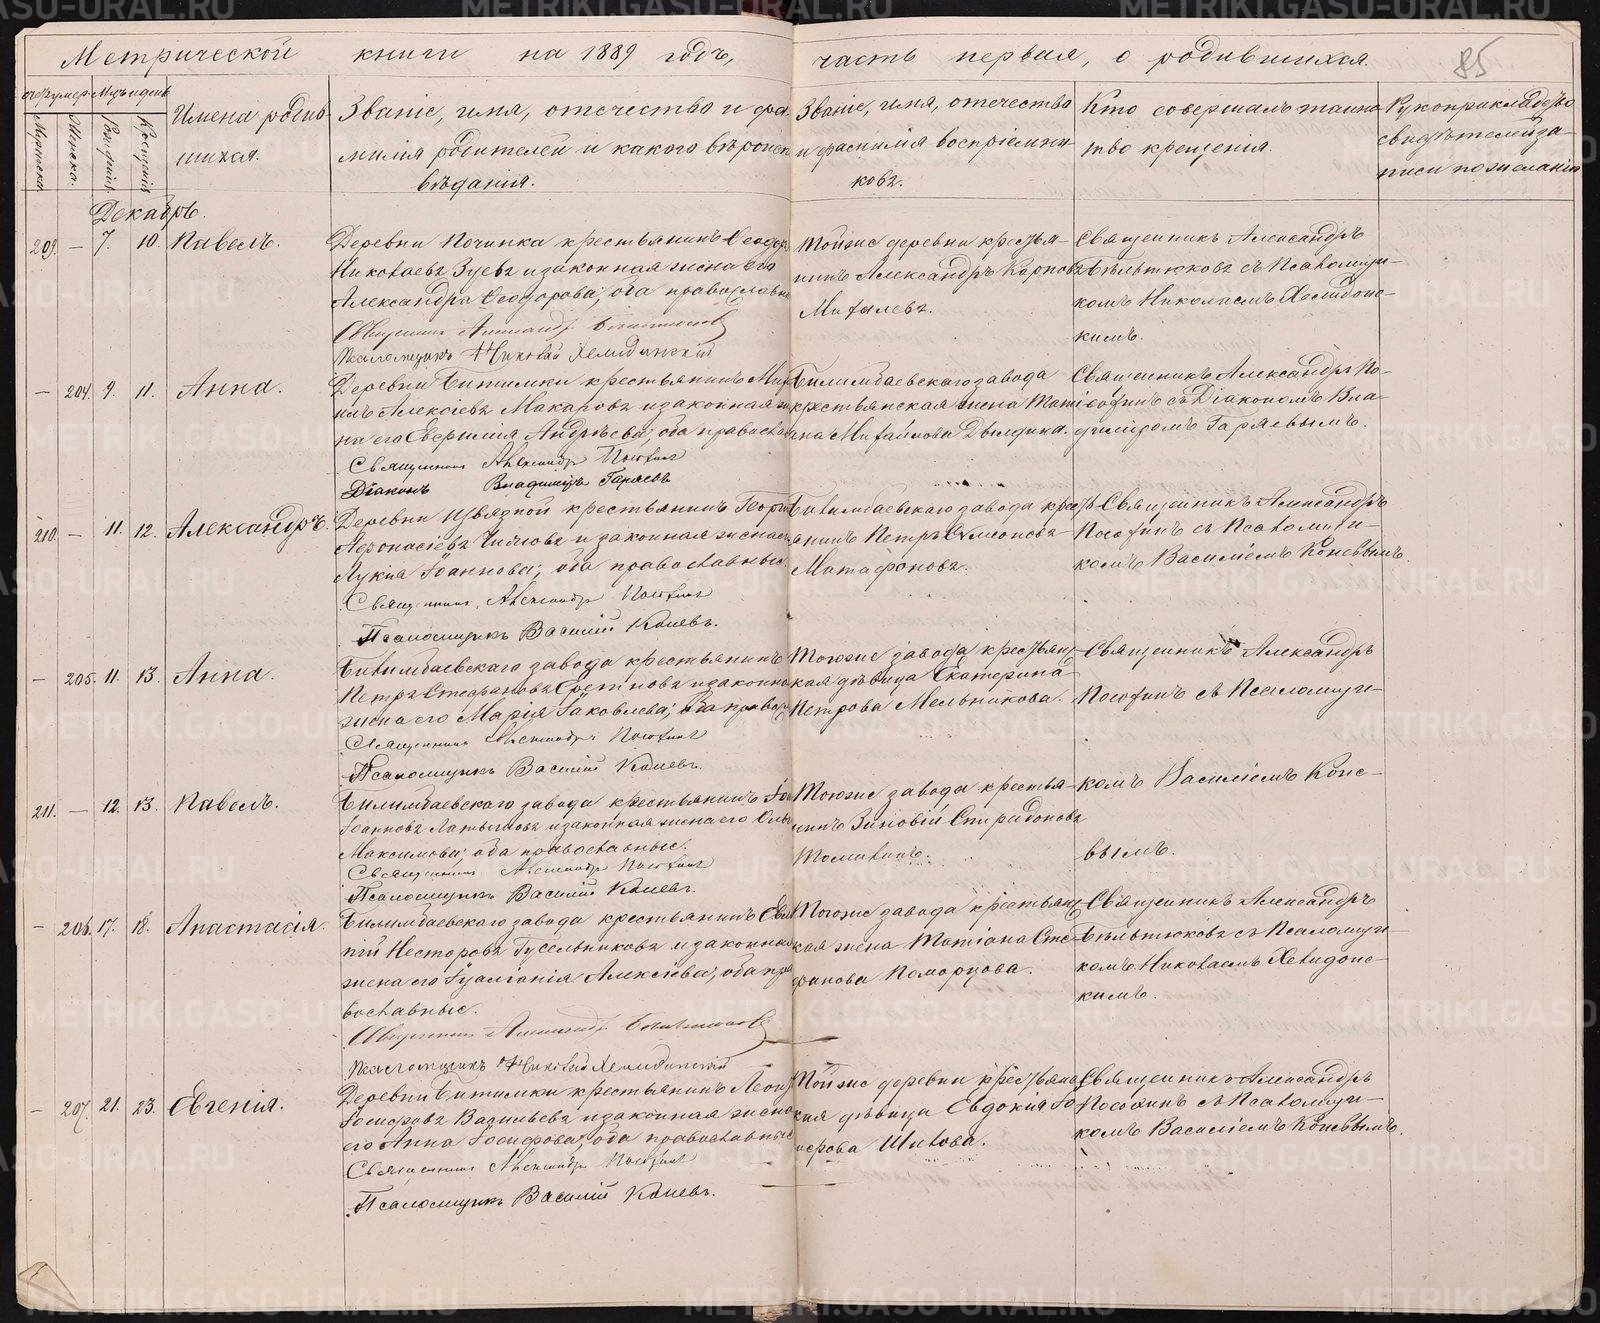 Метрической книги на 1889 годъ, часть первая, о родившихся.
85
Мужеска.
Женска.
Рожденія.
Крещенія.
Имена родив-
шихся.
Званіе, имя, отечество и фа-
милія родителей и какого вѣроиспо-
вѣданія.
Званіе, имя, отечество
и фамилія воспріемни-
ковъ.
Кто совершалъ таинс-
тво крещенія.
Рукоприкладство
свидѣтелей за-
писи по желанію
Декабрь.
209. — 7. 10. Павелъ.
Деревни Починка крестьянинъ Ѳеодоръ
Николаевъ Зуевъ и законная жена его
Александра Ѳеодорова; оба православные
Священникъ Александръ
Псаломщикъ Николай Хелидонскій
Той же деревни кресть-
нинъ Александръ Карповъ
Михалевъ.
Священникъ Александръ
съ Псаломщи-
комъ Николаемъ Хелидонс-
кимъ.
— 204. 9. 11. Анна.
Деревни Битимки крестьянинъ
Алексіевъ Макаровъ и законная же-
на его Андреева; оба православ
Священникъ Александръ
Діаконъ Владиміръ Гаряевъ
Билимбаевскаго завода
крестьянская жена Тати
ана Михайлова Дылдина.
Священникъ Александръ По-
съ Діакономъ Вла-
диміромъ Гаряевымъ.
210. — 11. 12. Александръ.
Деревни Извязной крестьянинъ Георгій
Афонасіевъ и законная жена его
Лукія Іоаннова; оба православные.
Священникъ Александръ
Псаломщикъ Василій Коневъ.
Билимбаевскаго завода кресть
янинъ Петръ Симеоновъ
Матафоновъ.
Священникъ Александръ
съ Псаломщи-
комъ Василіемъ Коневымъ.
— 205. 11. 13. Анна.
Билимбаевскаго завода крестьянинъ
Петръ Стефановъ и законная
жена его Марія Іаковлева; оба правосл
Священникъ Александръ
Псаломщикъ Василій Коневъ.
Того же завода крестьянс
кая дѣвица Екатерина
Петрова Мельникова.
Священникъ Александръ
съ Псаломщи-
211. — 12. 13. Павелъ.
Билимбаевскаго завода крестьянинъ
Іоанновъ Латышовъ и законная жена его
Максимова; оба православные.
Священникъ Александръ
Псаломщикъ Василій Коневъ.
Того же завода крестья-
нинъ Зиновій Спиридоновъ
Томилинъ.
комъ Василіемъ Коне-
вымъ.
— 206. 17. 18. Анастасія.
Билимбаевскаго завода крестьянинъ
пій Несторовъ Гусельниковъ и законная
жена его Іуліанія Алексіева; оба пра
вославные.
Священникъ Александръ
Псаломщикъ Николай Хелидонскій
Того же завода крестьянс
кая жена Татіана Сте-
фанова Поморцова.
Священникъ Александръ
съ Псаломщи-
комъ Николаемъ Хелидонс-
кимъ.
— 207. 21. 23. Евгенія.
Деревни Битимки крестьянинъ
Іосифовъ Васильевъ и законная жена
его Анна Іосифова; оба православные
Священникъ Александръ
Псаломщикъ Василій Коневъ.
Той же деревни крестьянс
кая дѣвица Евдокія Іо
сифова Шилова.
Священникъ Александръ
съ Псаломщи-
комъ Василіемъ Коневымъ.
METRIKI.GASO-URAL.RU